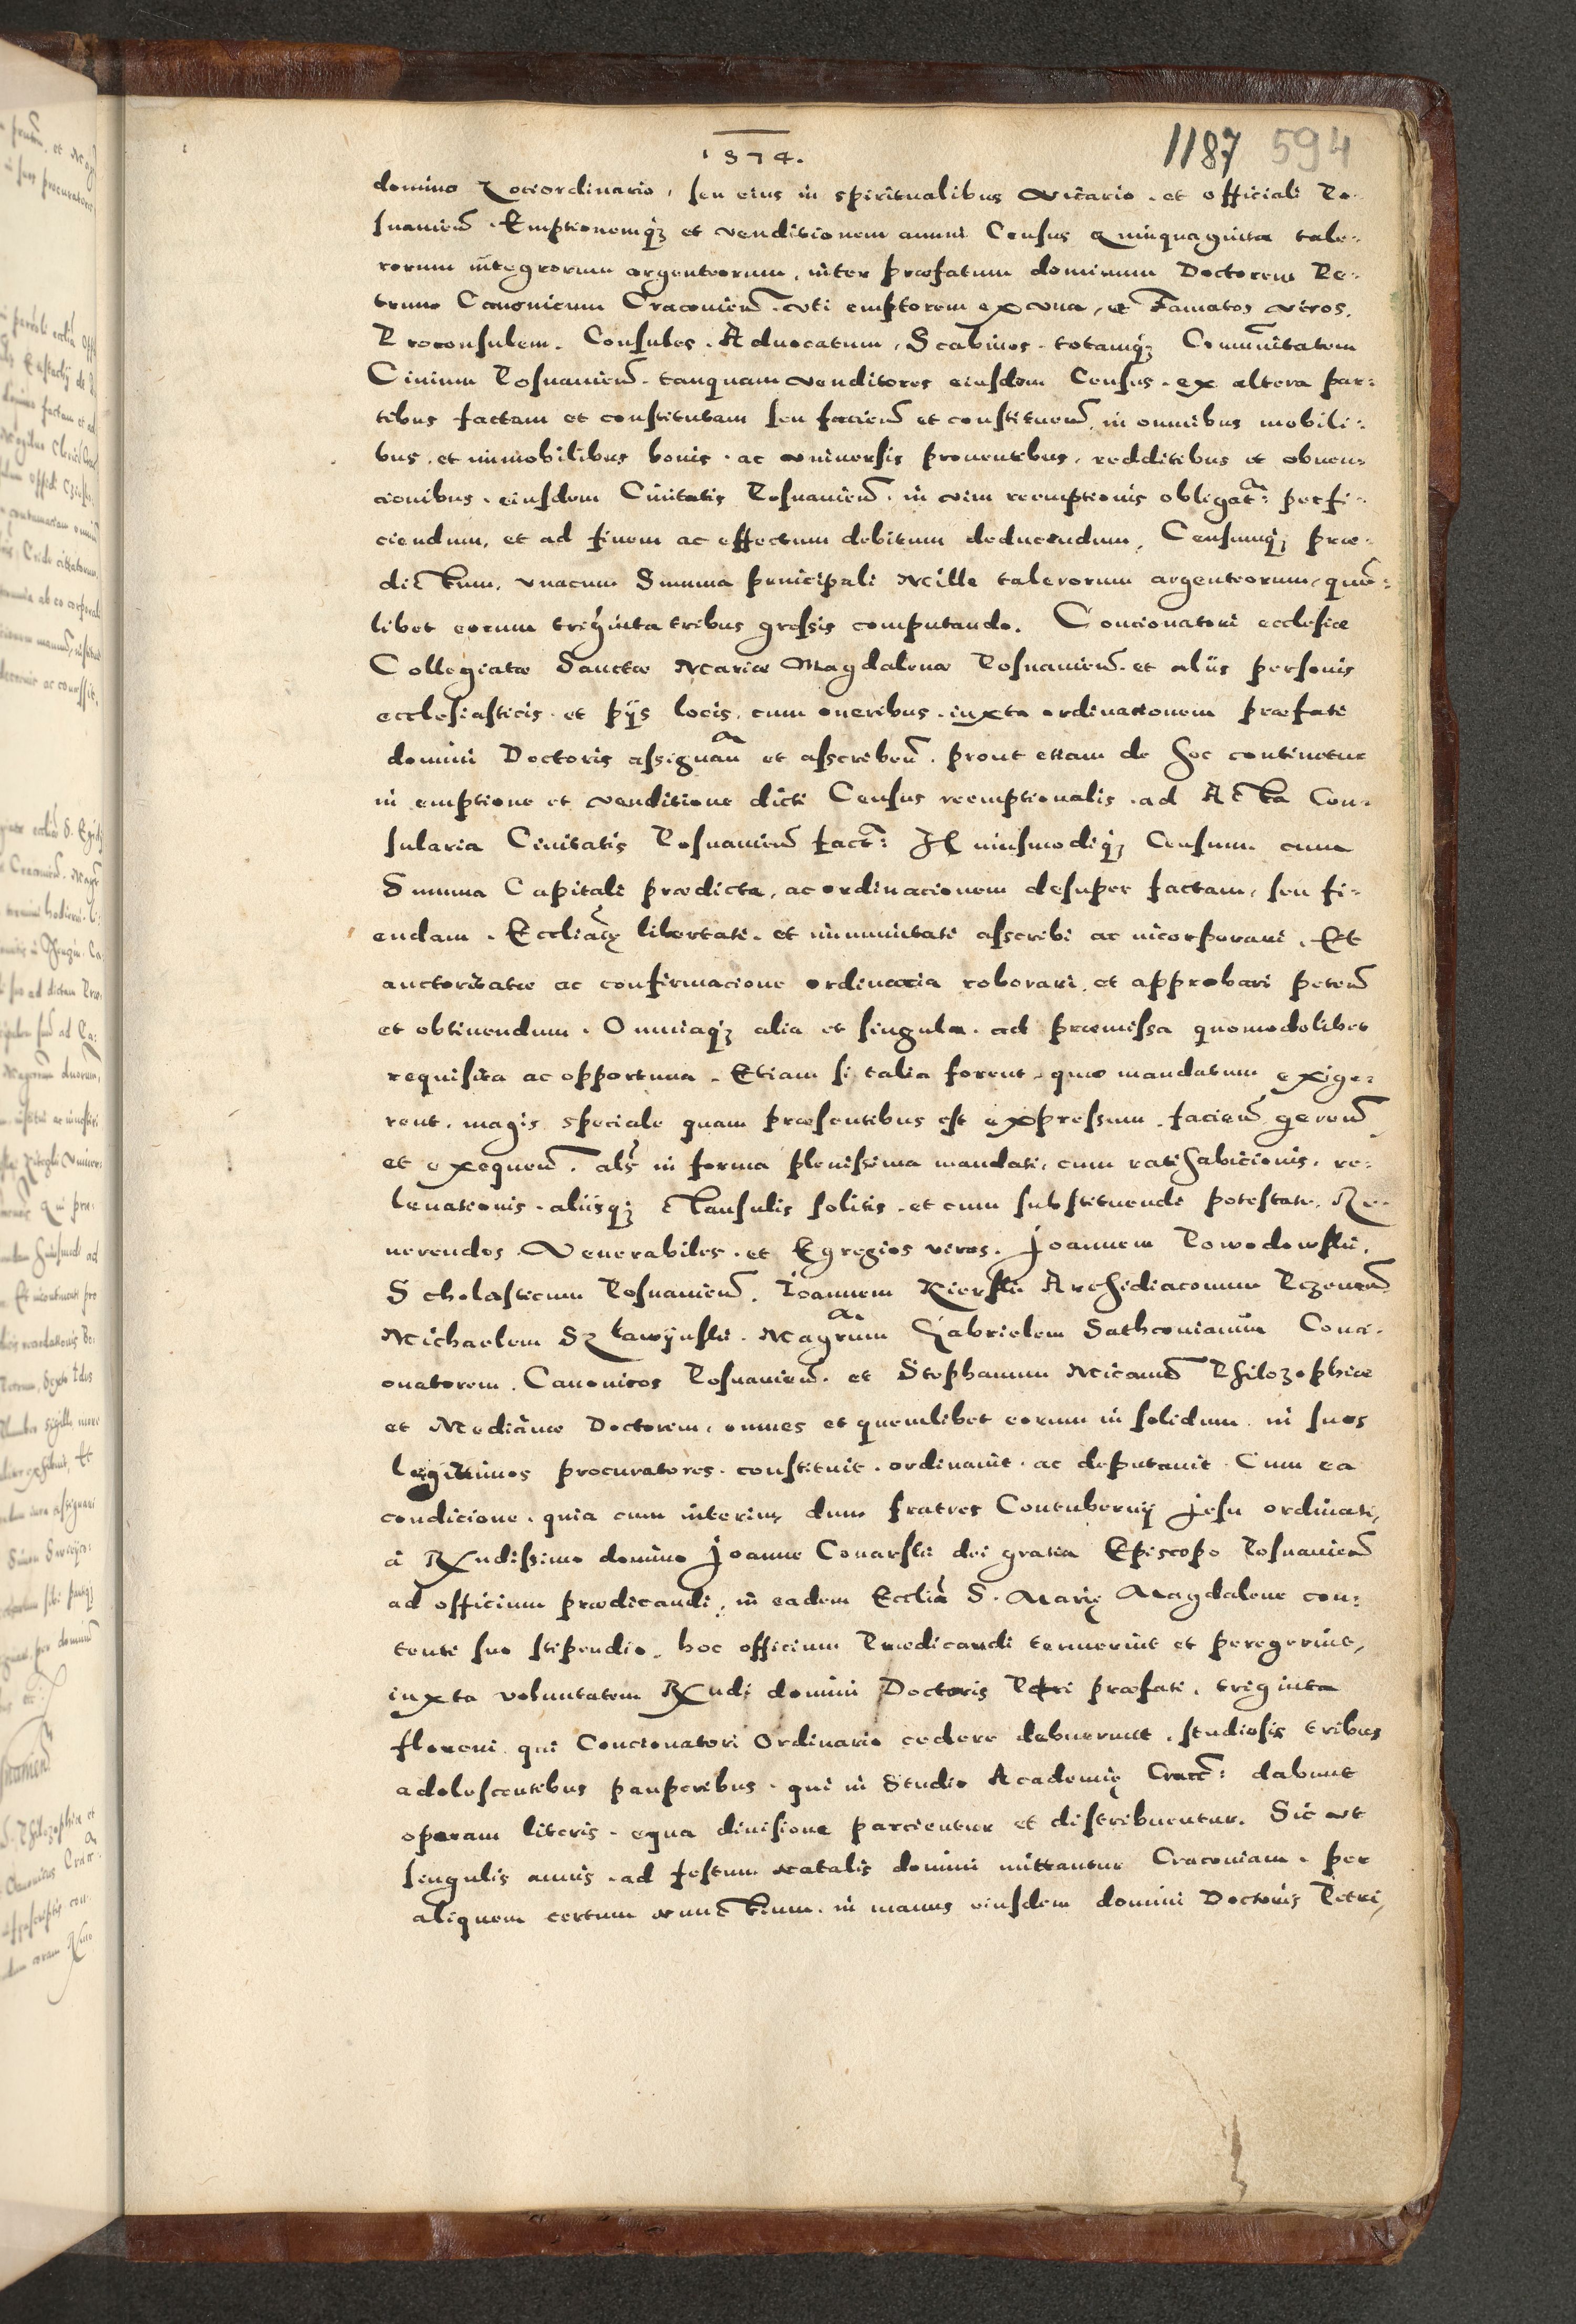 1574.
1187 594
domino Lociordinario, seu eius in spiritualibus Vicario. et officiali Po-
snanien̄. Emptionemq3 et venditionem annui Census quinquaginta tale-
rorum integrorum argenteorum, inter præfatum dominum Doctorem Pe-
trum Canonicum Cracovien̄. vti emptorem ex vna, et Famatos viros,
Proconsulem. Consules. Aduocatum, Scabinos. totamq3 Com̄unitatem
Ciuium Posnanien̄. tanquam venditores eiusdem Census. ex altera par-
tibus factam et constitutam seu facien̄ et constituen̄. in omnibus mobili-
bus. et immobilibus bonis. ac vniuersis prouentibus, redditibus et obuen-
cionibus. eiusdem Ciuitatis Posnanien̄. in vim reemptionis obligat: perfi-
ciendum, et ad finem ac effectum debitum deducendum, Censumq3 præ-
dictum, vnacum Summa principali Mille talerorum argenteorum, quem-
libet eorum triginta tribus grossis computando. Concionatori ecclesiæ
Collegiatæ Sanctæ Mariæ Magdalenæ Posnanien̄. et aliis personis
ecclesiasticis. et pijs locis. cum oneribus. iuxta ordinationem præfati
domini Doctoris assignan̄ et asscriben̄. prout etiam de hoc continetur
in emptione et venditione dicti Census reemptionalis. ad Acta Con-
sularia Ciuitatis Posnanien̄ fact: Huiusmodiq3 Censum cum
Summa Capitali prædicta, ac ordinacionem desuper factam, seu fi-
endam. Eccliasticę libertati. et immunitati asscribi ac incorporari. Et
auctoritate ac confirmacione ordinaria roborari, et approbari peten̄
et obtinendum. Omniaq3 alia et singula. ad præmissa quomodolibet
requisita ac opportuna. Etiam si talia forent. quæ mandatum exige-
rent. magis speciale quam præsentibus est expressum. facien̄ geren̄
et exequen̄. als̄ in forma plenissima mandati, cum ratihabicionis, re-
leuationis. aliisq3 clausulis solitis. et cum substituendi potestate. Re-
uerendos. Venerabiles. et Egregios viros. Joannem Powodowski,
Scholasticum Posnanien̄. Ioannem Kierski Archidiaconum Pczeuen̄
Michaelem Szkawynski. Magrum Gabrielem Sathconianum Conci-
onatorem. Canonicos Posnanien̄. et Stephanum Micanum Philozophiæ
et Medicinæ Doctorem, omnes et quemlibet eorum in solidum. in suos
legittimos procuratores. constituit. ordinauit. ac deputauit. Cum ea
condicione. quia cum interim, dum fratres Contubernij Jesu ordinati,
à Rxndissimo domino Joanne Conarski dei gratia Episcopo Posnanien̄
ad officium prædicandi, in eadem Ecclia S. Marię Magdalene con-
tenti suo stipendio. hoc officium Prædicandi tenuerint et peregerint,
iuxta voluntatem Rxndi domini Doctoris Petri præfati. triginta
floreni qui Concionatori Ordinario cedere debuerunt. studiosis tribus
adolescentibus pauperibus. qui in Studio Academię Crac: dabunt
operam literis. equa diuisione parcientur et distribuentur. Sic vt
singulis annis. ad festum Natalis domini mittantur Cracouiam. per
aliquem certum nunctium. in manus eiusdem domini Doctoris Petri,